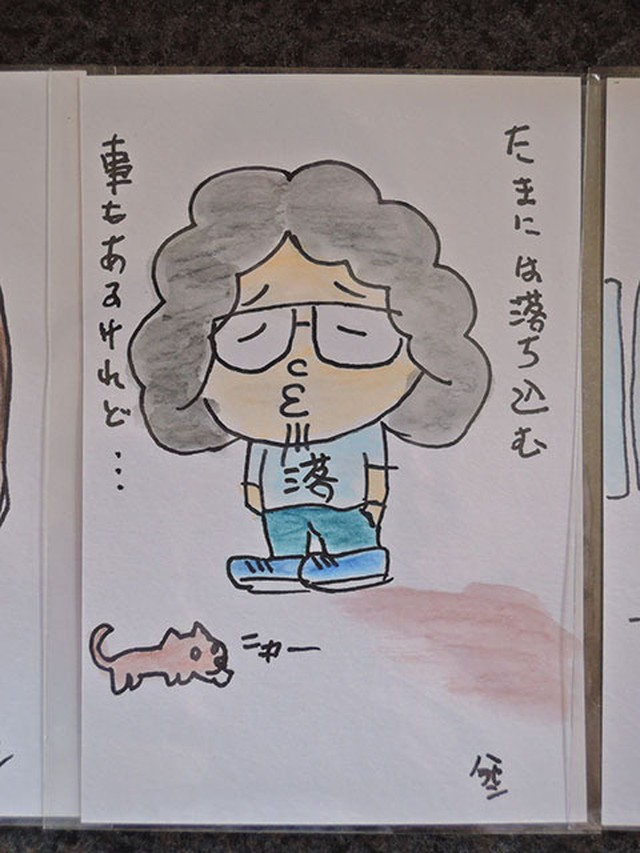 たまには落ち込む
事もあるけれど…
落
ニャー